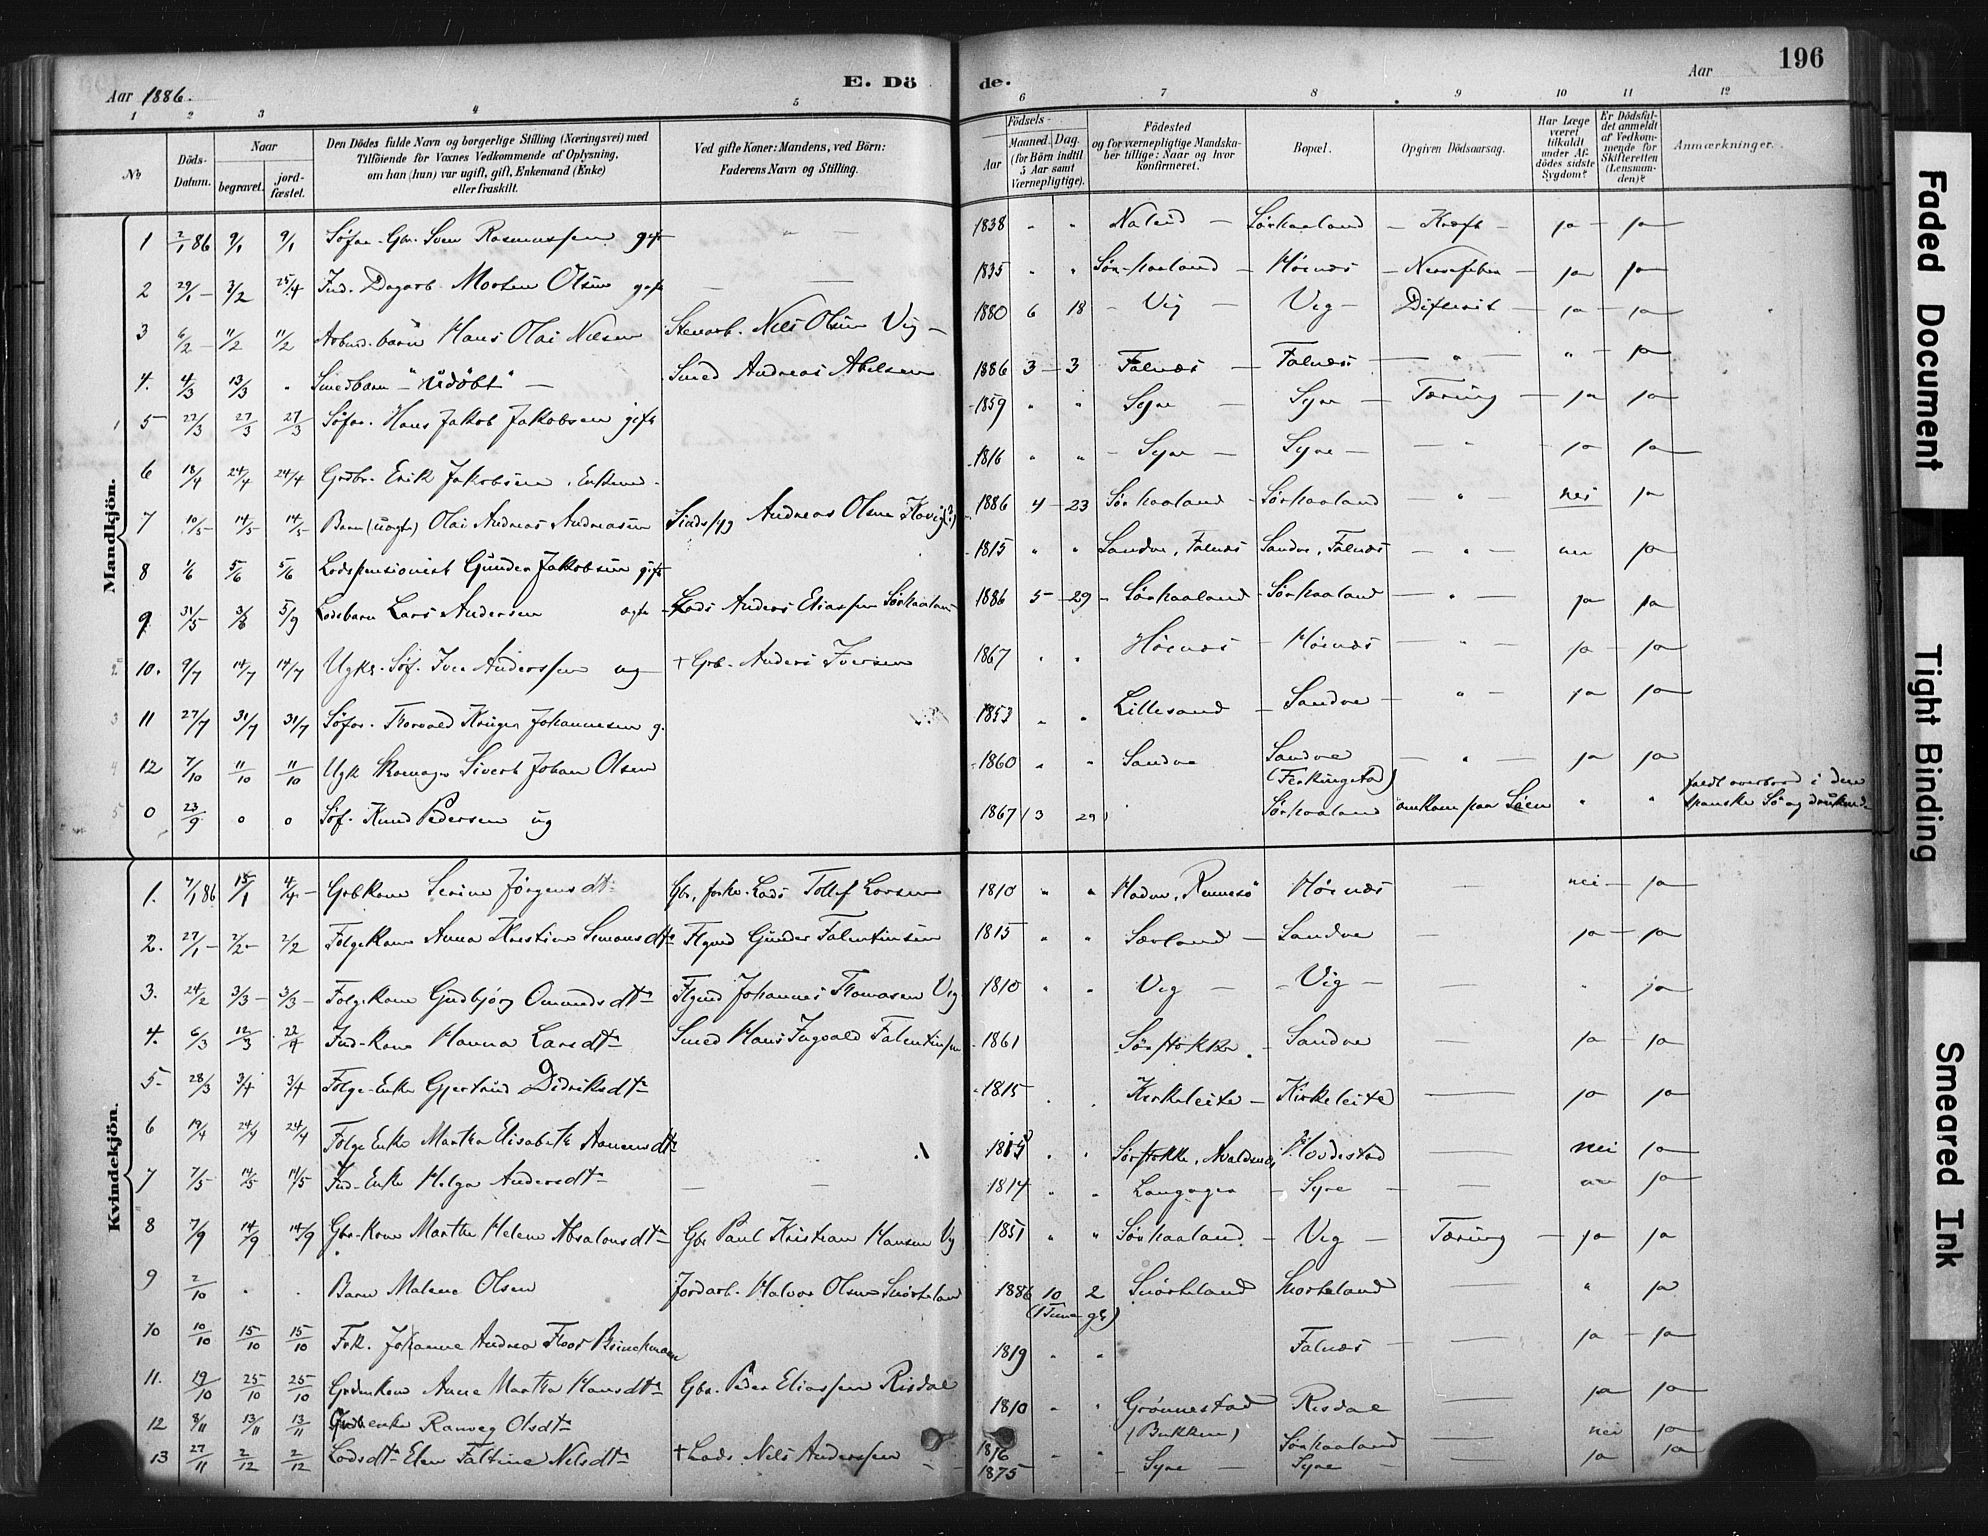 Aar 1886.
E. Dö
de.
Aar
196
1 2 3 4 5 6 7 8 9 10 11 12
No
Döds-Datum.
Naar
begravet.
jord-fæstet.
Den Dödes fulde Navn og borgerlige Stilling (Næringsvei) med
Tilföiende for Voxnes Vedkommende af Oplysning,
om han (hun) var ugift, gift, Enkemand (Enke)
eller fraskilt.
Ved gifte Koner: Mandens, ved Börn:
Faderens Navn og Stilling.
Födsels-
Aar
Maaned. Dag.
(for Börn indtil
5 Aar samt
Værnepligtige).
Födested
og for værnepligtige Mandska-
ber tillige: Naar og hvor
konfirmeret.
Bopæl.
Opgiven Dödsaarsag.
Har Læge
været
tilkaldt
under Af-
dödes sidste
Sygdom?
Er Dödsfal-
det anmeldt
af Vedkom-
mende for
Skifteretten
(Lensman-
den)?
Anmærkninger.
Mandkjön.
1 2/1 86 9/1 9/1 Søfar. Gbr. Sven Rasmussen gift 1838 " " Naleid — Sørhaaland — Kræft — ja — ja
2 29/1 — 3/2 25/4 Ind. Dagarb. Morten Olsen gift — — 1835 " " Sørhaaland — Høinæs — Nervefeber — ja ja
3 6/2 — 11/2 11/2 Arbeid. barn Hans Olai Nilsen Stenarb. Nils Olsen Vig — 1880 6 18 — Vig — Vig — Difterit — ja — ja
4. 4/3 13/3 " Smedbarn — "Udöbt" — Smed Andreas Abelsen 1886 3 — 3 Falnæs — Falnæs — " — " — ja
5 22/3 27/3 27/3 Søfar. Hans Jakob Jakobsen gift 1859 " " Syre — Syre — Tæring — ja — ja
6 18/4 24/4 24/4 Grdbr. Erik Jakobsen, Enkem. 1816 " " — Syre — Syre — — " — ja — ja
7 10/5 14/5 14/5 Barn (uægte) Olai Andreas Andreasen Andreas Olsen 1886 4 — 23 Sørhaaland — Sørhaaland — " — nei ja
8 1/6 5/6 5/6 Lodspensionist Gunder Jakobsen gift 1815 " " Sandve, Falnæs Sandve, Falnæs — " — nei ja
9 31/5 3/6 5/9 Lodsbarn Lars Andersen ægte Lods Anders Eliassen Sørhaaland 1886 5 — 29 — Sørhaaland — Sørhaaland — " — ja ja
10. 9/7 14/7 14/7 Ugkr. Søf. Iver Anderssen ug + Grb. Anders Iversen 1867 " " Høinæs — Høinæs — " — ja — ja
11 27/7 31/7 31/7 Søfar. Torvald Krüger Johannesen g. 1853 " " Lillesand — Sandve — " — ja — ja
12 7/10 11/10 11/10 Ugk Skomager Sivert Johan Olsen 1860 " " Sandve Sandve (Ferkingstad) — " — ja ja
0 23/9 0 0 Søf. Knud Pedersen ug 1867 (3 29) Sørhaaland omkom paa Søen " " faldt overbord i den
spanske Sø og druknede
Kvindekjön.
1. 7/1 86 15/1 4/4 — Grbkone Serine Jørgensdt. Gbr, forhv. Lods Tollef Larsen 1810 " " Hodne, Rennesø Høinæs — nei — ja
2. 27/1 — 2/2 — 2/2 Folgekone Anna Kristine Simonsdt. Flgmd Gunder Falentinsen 1815 " " Sævland — Sandve — ja — ja
3. 24/2 3/3 — 3/3 — Folgekone Gudbjørg Omundsdt. Flgmd Johannes Thomasen Vig 1810 " " Vig — — Vig — — " ja
4. 6/3 12/3 22/4 Ind-kone Hanna Larsdt. Smed Hans Ingvald Falentinsen 1861 Sørstokke. — Sandve — ja — ja
5 28/3 3/4 3/4 Folge-Enke Gjertrud Didriksdt. 1815 " " Kirkeleite — Kirkeleite — ja ja
6 19/4 24/4 24/4 Folge Enke Martha Elisabeth Aanensdt. 1815 " " Sørstokke, Avaldsnæs Hovdestad — nei ja
7 7/5 14/5 14/5 Ind-Enke Helga Andersdt. — — 1814 " " Langager — Syre — — nei ja
8 7/9 14/9 14/9 Gbr-kone Martha Helene Absalonsdt. Gbr Paul Kristian Hansen Vig 1851 " " Sørhaaland. — Vig — Tæring — ja — ja
9 2/10 " " Barn Malene Olsen Jordarb. Halvor Olsen Snørteland 1886 10 2 (1 Time gl.) Snørteland Snorteland — " ja
10 10/10 15/10 15/10 Frk. Johanne Andrea Floor Brinchmann 1819 " " Falnæs — — ja — ja
11. 19/10 25/10 25/10 Grdmkone Anne Martha Hansdt. Gbr. Peder Eliassen Risdal 1810 " " Grønnestad (Bukken) Risdal — ja — ja
12 8/11 13/11 13/11 enke Ranveg Olsdt. 1816 " " Sørhaaland — nei ja
13 27/11 2/12 2/12 Lodsdt. Elen Taltine Nilsdt. + Lods Nils Anderssen 1875 — Syre — Syre — — ja ja
Faded Document
Tight Binding
Smeared Ink